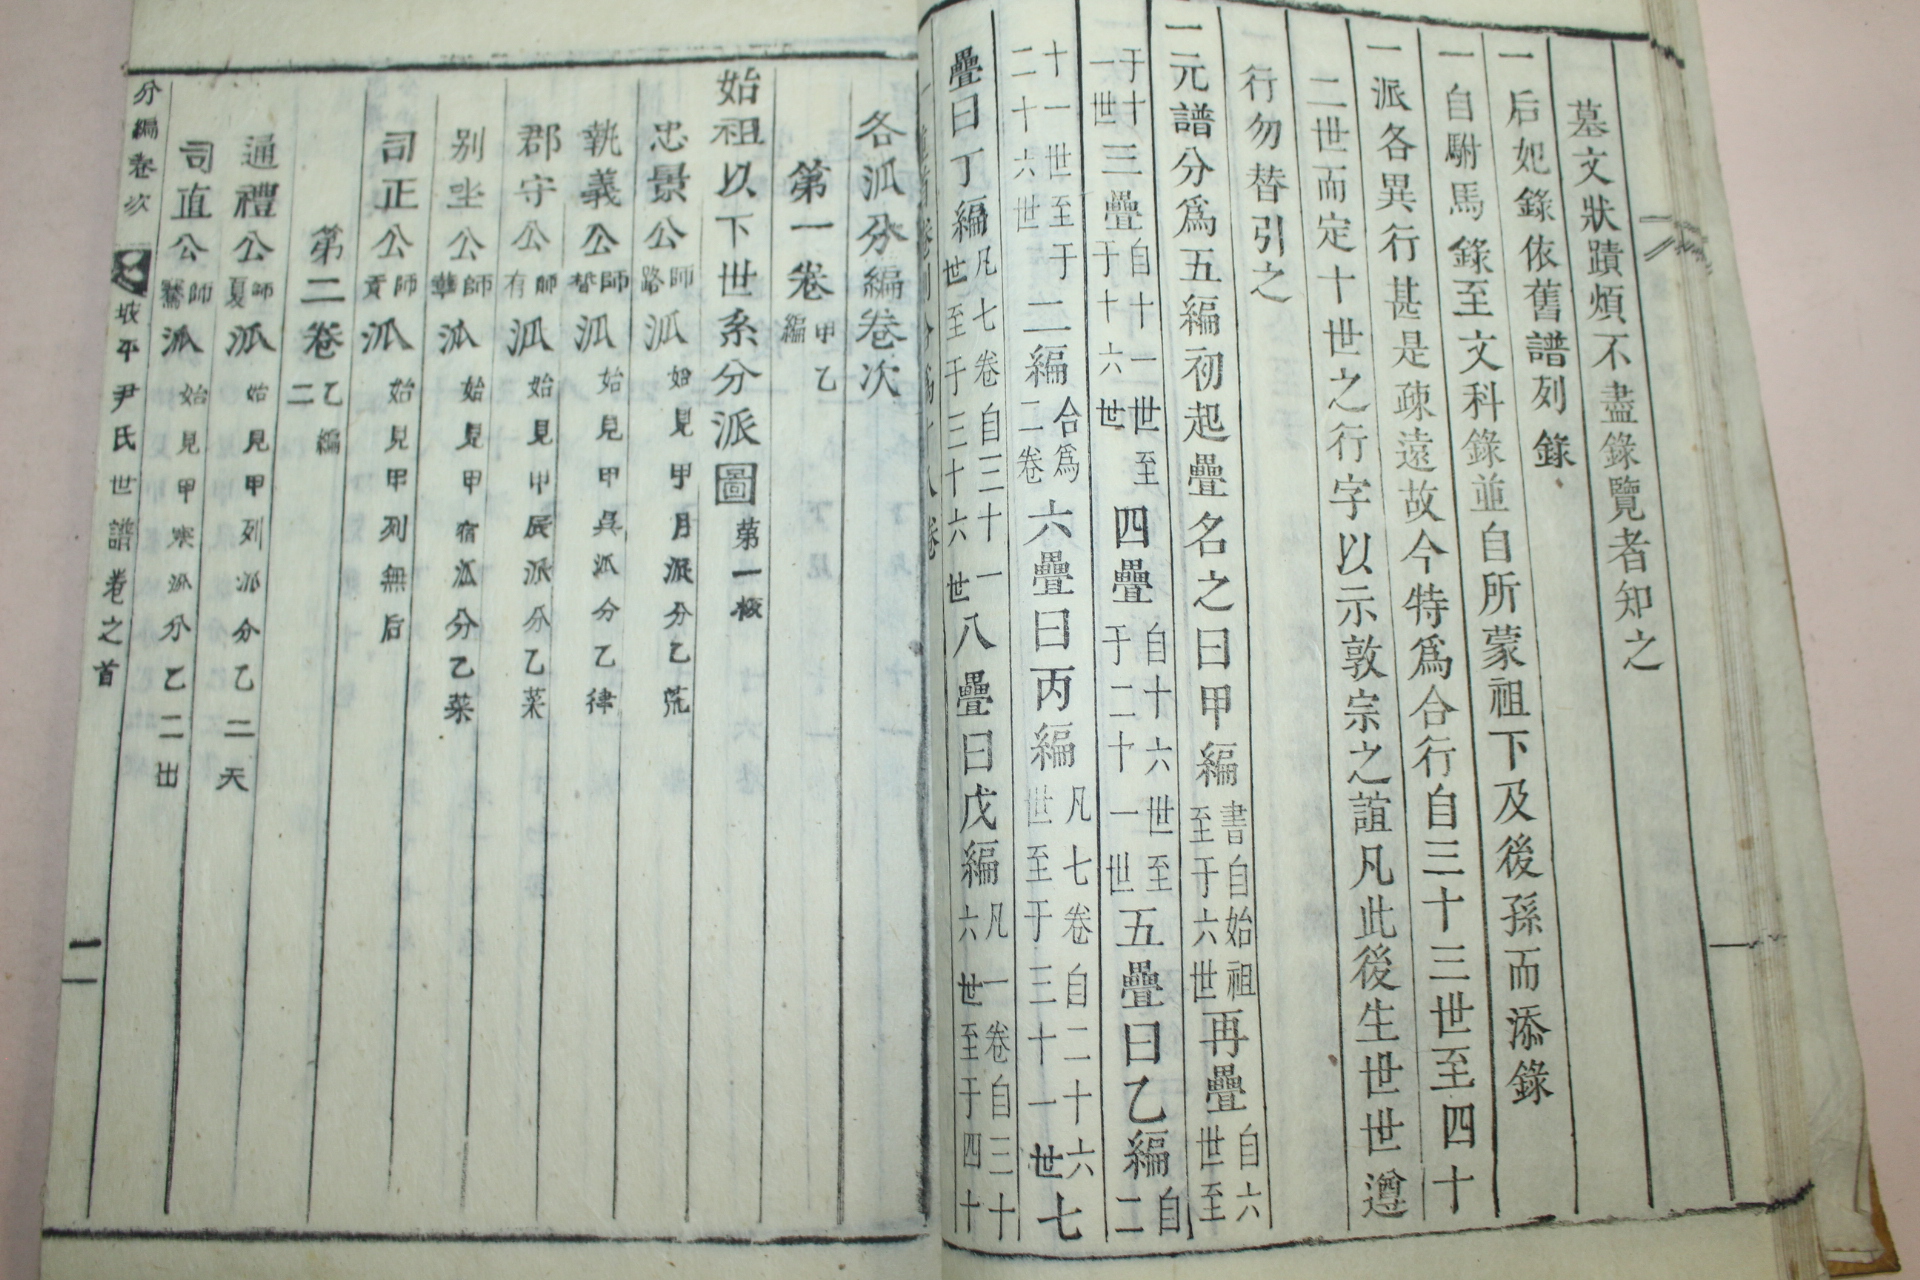 墓文狀蹟煩不盡錄覽者知之
一后妃錄依舊譜列錄
一自駙馬錄至文科錄並自所蒙祖下及後孫而添錄
一派各異行甚是疎遠故今特爲合行自三十三世至四十
二世而定十世之行字以示敦宗之誼凡此後生世世遵
行勿替引之
一元譜分爲五編初起疊名之曰甲編書自始祖至于六世再疊自六世至
于十一世三疊自十一世至于十六世四疊自十六世至于二十一世五疊曰乙編自二
十一世至于二十六世二編合爲二卷六疊曰丙編凡七卷自二十六世至于三十一世七
疊曰丁編凡七卷自三十一世至于三十六世八疊曰戊編凡一卷自三十六世至于四十
各派分編卷次
第一卷甲乙編
始祖以下世系分派圖第一板
忠景公師路派始見甲月派分乙荒
執義公師晳派始見甲昃派分乙律
郡守公師有派始見甲辰派分乙菜
別坐公師華派始見甲宿派分乙菜
司正公師貢派始見甲列無后
第二卷乙編二
通禮公師夏派始見甲列派分乙二天
司直公師騫派始見甲寒派分乙二出
分編卷次 坡平尹氏世譜卷之首 一